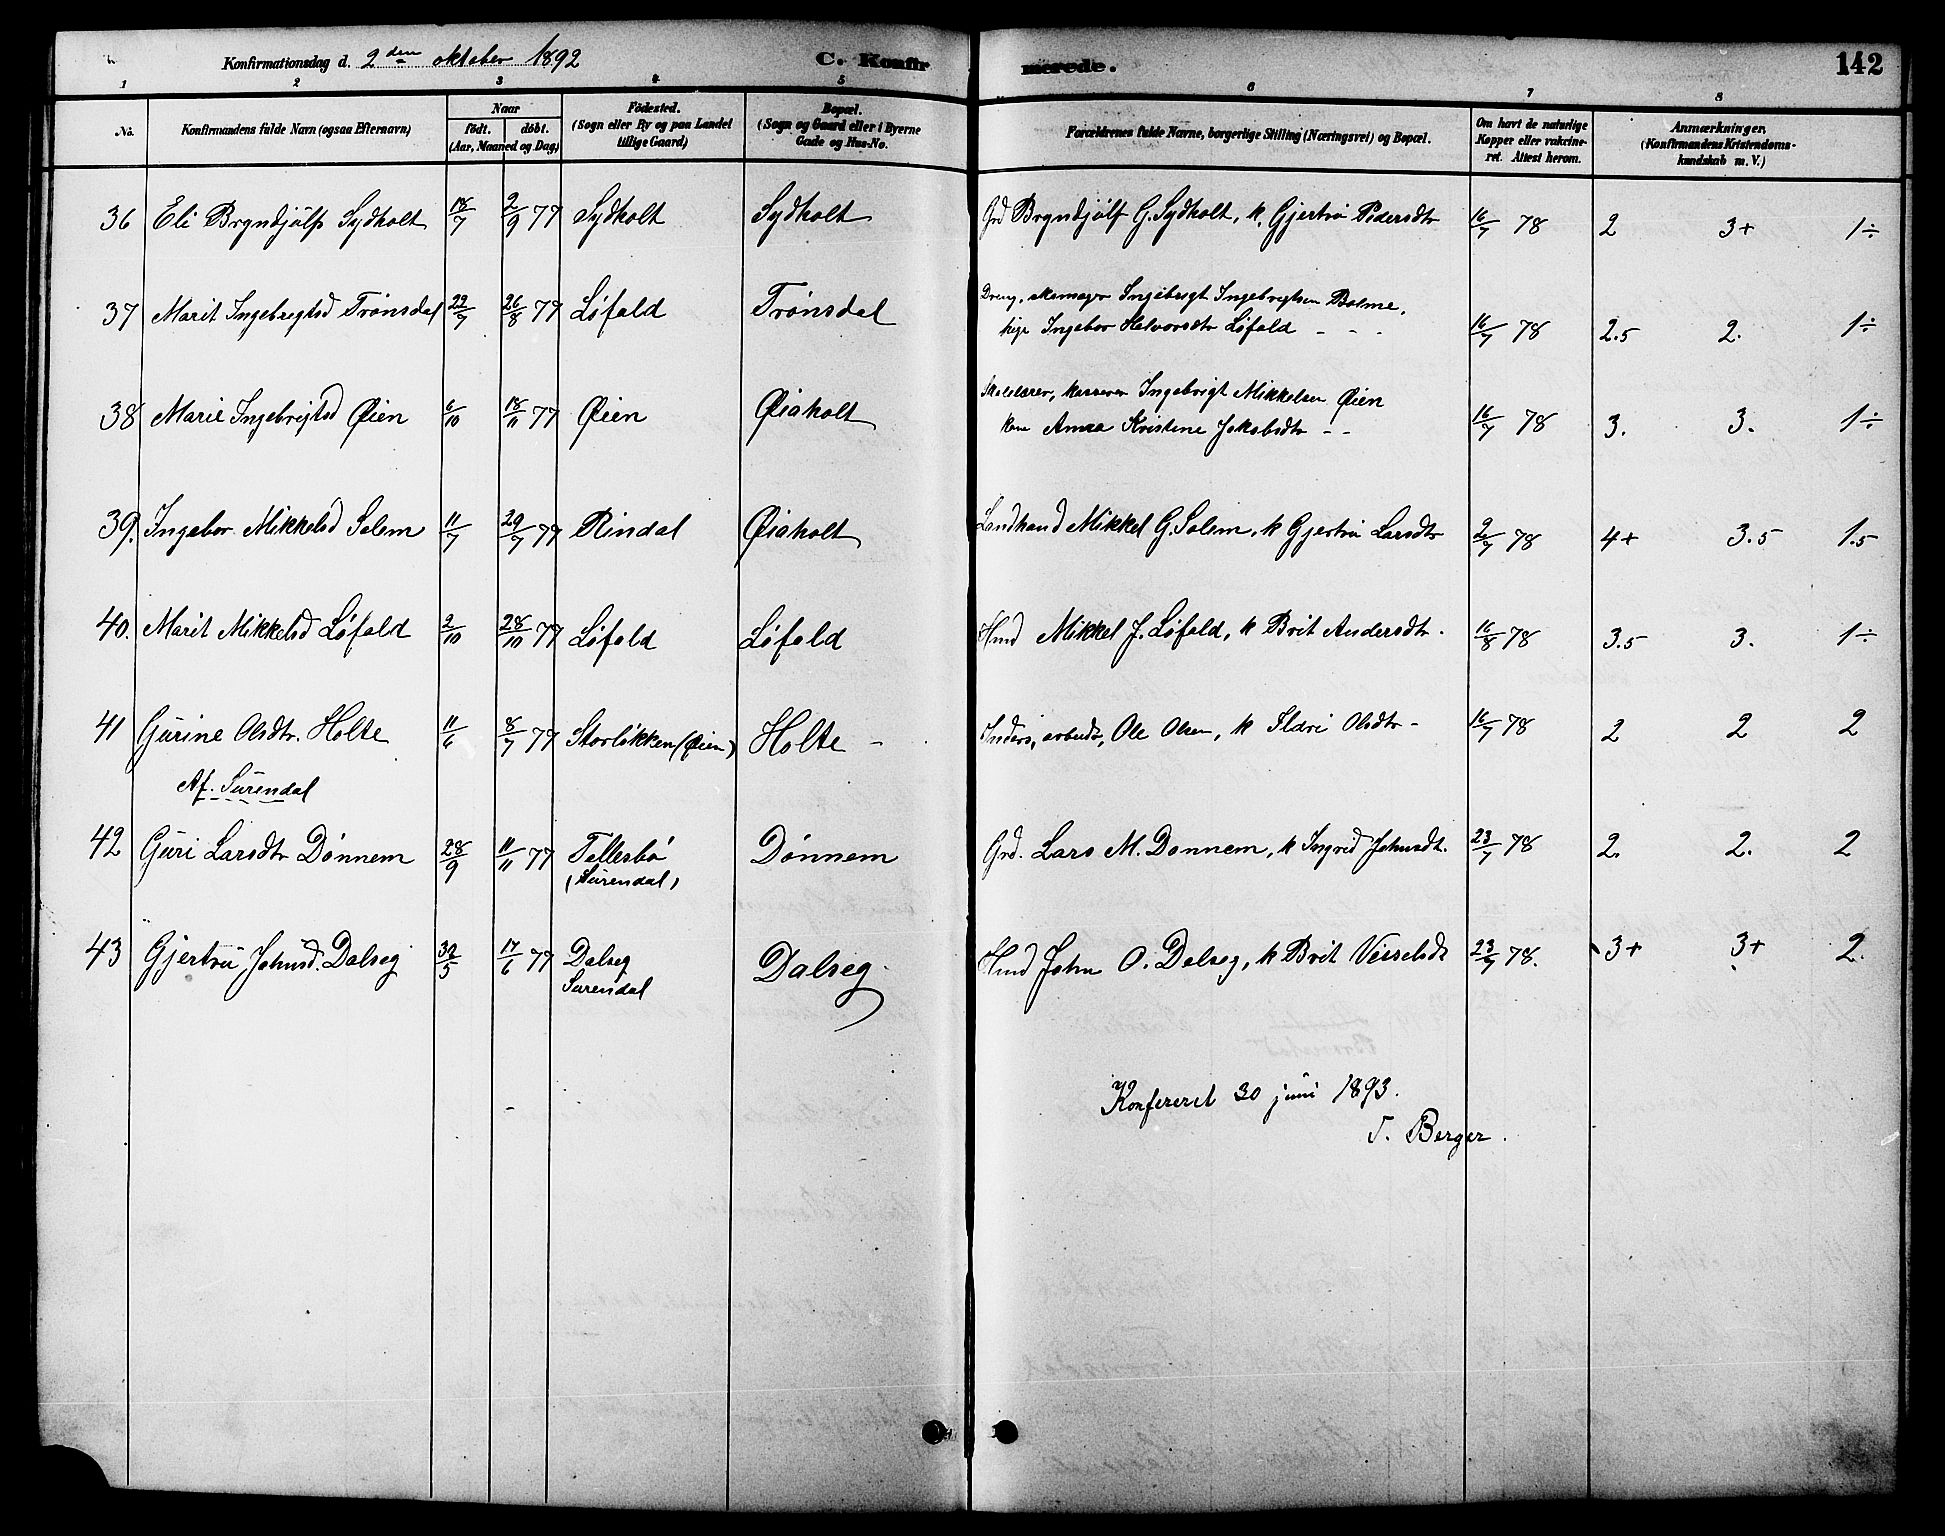 Konfirmationsdag d. 2den oktober 1892 C. Konfirmerede. 142
1 2 3 4 5 6 7 8
No. Konfirmandens fulde Navn (ogsaa Efternavn) Naar födt. döbt. (Aar, Maaned og Dag) Födested. (Sogn eller By og paa Landet tillige Gaard) Bopæl. (Sogn og Gaard eller i Byerne Gade og Hus-No. Forældrenes fulde Navne, borgerlige Stilling (Næringsvei) og Bopæl. Om havt de naturlige Kopper eller vakcineret. Attest herom. Anmærkninger. (Konfirmandens Kristendomskundskab m. V.)
36 Eli Bryndjülfs Sydholt 18/7 2/9 77 Sydholt Sydholt Grd Bryndjülf G. Sydholt, k. Gjertrü Pedersdtr 16/7 78 2 3+ 1÷
37 Marit Ingebrigtsd Trønsdal 29/7 26/8 77 Løfald Trønsdal Dreng, skomager Ingebrigt Ingebrigtsen Bolme,
Pige Ingebor Halvorsdtr Løfald - - - 16/7 78 2.5 2. 1÷
38 Marie Ingebrigtsd Øien 6/10 18/11 77 Øien Øiaholt Skolelærer, kasserer Ingebrigt Mikkelsen Øien
kone Anna Kristene Jakobsdtr - - 16/7 78 3. 3. 1÷
39. Ingebor Mikkelsd Solem 11/7 29/7 77 Rindal Øiaholt Landhand Mikkel G. Solem, k Gjertrü Larsdtr 2/7 78 4+ 3.5 1.5
40. Marit Mikkelsd Løfald 2/10 28/10 77 Løfald Løfald Hmd Mikkel J. Løfald, k Brit Andersdtr. 16/8 78 3.5 3. 1÷
41 Gürine Olsdtr. Holte 11/6 8/7 77 Storløkken (Øien) Holte - Inders, arbeidr, Ole Olsen, k Ildri Olsdtr - 16/7 78 2 2 2
Af. Sürendal
42 Güri Larsdtr Dönnem 28/9 11/11 77 Tellesbö Dönnem Grd. Lars M. Dönnem, k Ingrid Johnsdt. 23/7 78 2. 2. 2
(Sürendal)
43 Gjertrü Johnsd. Dalseg 30/5 17/6 77 Dalseg Dalseg Hmd John O. Dalseg, k Brit Vesselsdt 23/7 78. 3+ 3+ 2.
Surendal
Konfereret 30 juni 1893.
T. Berger.